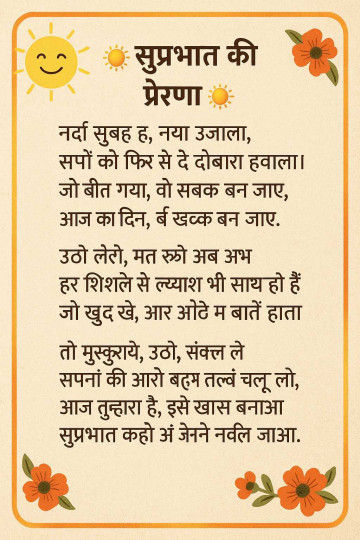 सुप्रभात की
प्रेरणा
नर्दा सुबह ह, नया उजाला,
सपों को फिर से दे दोबारा हवाला।
जो बीत गया, वो सबक बन जाए,
आज का दिन, र्ब खव्क बन जाए.
उठो लेगे, मत स्को अब अभ
हर शिशले से ल्य्याश भी साथ हो हैं
जो खुद खे, आर ओटे म बातें हाता
तो मुस्कुराये, उठो, संक्ल ले
सपनां की आरो बह्म तल्वं चलू लो,
आज तुन्हारा है, इसे खास बनाआ
सुप्रभात कहो अं जेनने नर्वल जाआ.